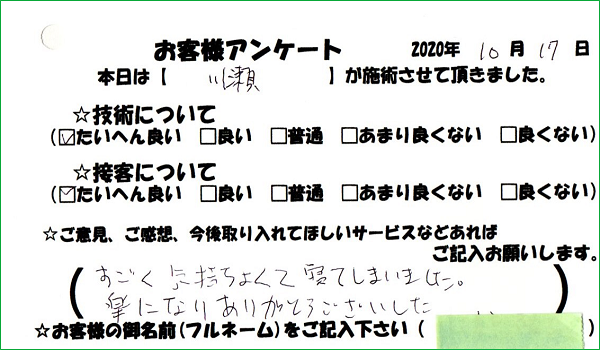 お客様アンケート 2020年 10月 17日
本日は【 川瀬 】が施術させて頂きました。
☆技術について
(☑たいへん良い □良い □普通 □あまり良くない □良くない)
☆接客について
(☑たいへん良い □良い □普通 □あまり良くない □良くない)
☆ご意見、ご感想、今後取り入れてほしいサービスなどあれば
ご記入お願いします。
(すごく気持ちよくて寝てしまいました。
楽になりありがとうございした)
☆お客様の御名前(フルネーム)をご記入下さい( )